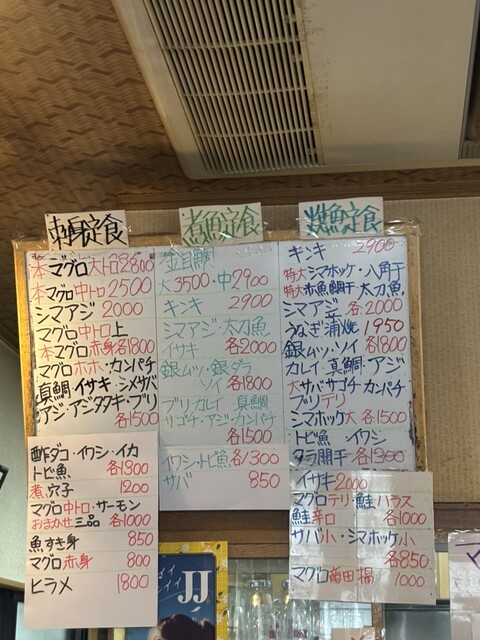 刺身定食
本マグロ大トロ2800
本マグロ中トロ2500
シマアジ 2000
マグロ中トロ上
本マグロ赤身各1800
マグロホホ・カンパチ
真鯛・イサキ・シメサバ
アジ・アジタタキ・ブリ
各1500
酢ダコ・イワシ・イカ
トビ魚 各1300
煮穴子 1200
マグロ中トロ・サーモン
おまかせ三品 各1000
魚すき身 850
マグロ赤身 800
ヒラメ 1800
煮魚定食
金目鯛
大3500・中2900
キンキ 2900
シマアジ・太刀魚
イサキ 各2000
銀ムツ・銀ダラ
ソイ 各1800
ブリ・カレイ・真鯛
サゴチ・アジ・カンパチ
各1500
イワシ・トビ魚 各1300
サバ 850
焼魚定食
キンキ 2900
特大シマホッケ・八角干
特大赤魚鯛干・太刀魚
シマアジ 各2000
うなぎ蒲焼 1950
銀ムツ・ソイ 各1800
カレイ・真鯛・アジ
大サバサゴチ・カンパチ
ブリテリ
シマホッケ大 各1500
トビ魚・イワシ
タラ開干 各1300
イサキ2000
マグロテリ・鮭ハラス
鮭辛口 各1000
サバ小・シマホッケ小
各850
マグロ 揚 1000
JJ